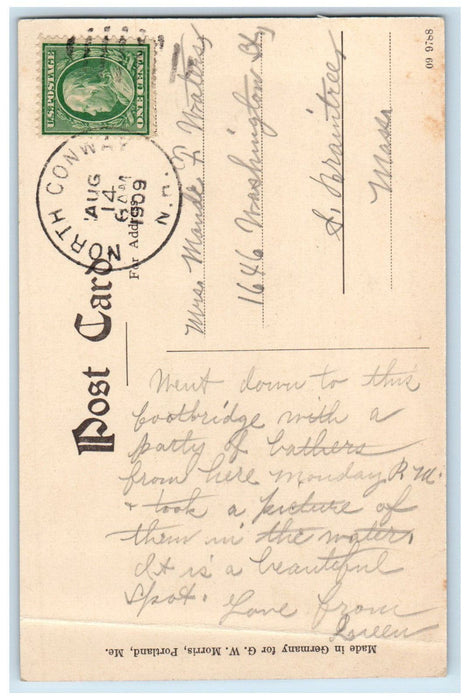 U.S. POSTAGE
ONE CENT
NORTH CONWAY
N.H.
AUG
14
1909
Post Card
For Address
09 9788
Miss Maude F. Waters,
1646 Washington St,
S. Braintree,
Mass
Went down to this
footbridge with a
party of bathers
from here Monday P.M.
+ took a picture of
them in the water.
It is a beautiful
spot. Love from
Made in Germany for G. W. Morris, Portland, Me.